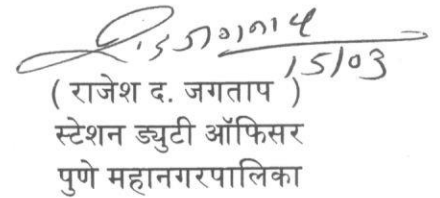 15/03
( राजेश द. जगताप )
स्टेशन ड्युटी ऑफिसर
पुणे महानगरपालिका